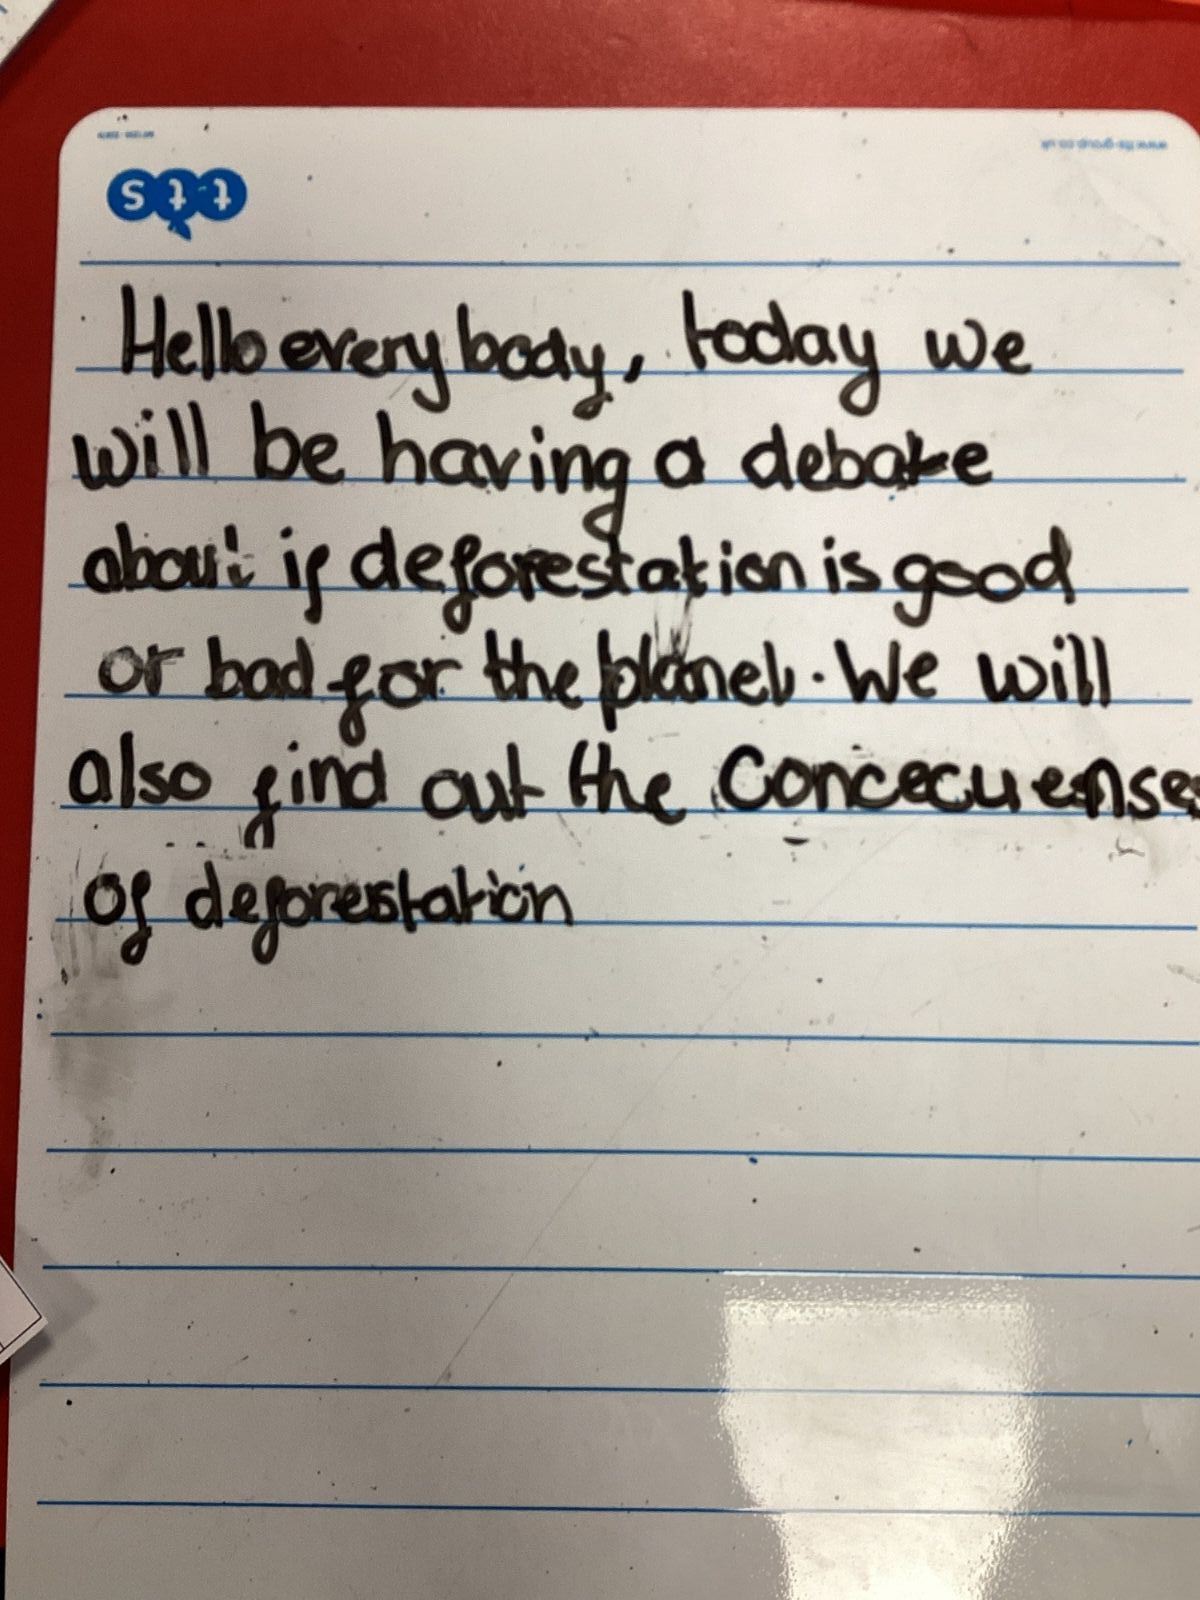 tts
www.tts-group.co.uk
Hello everybody, today we
will be having a debate
about if deforestation is good
or bad for the planet. We will
also find out the Concecuenses
of deforestation